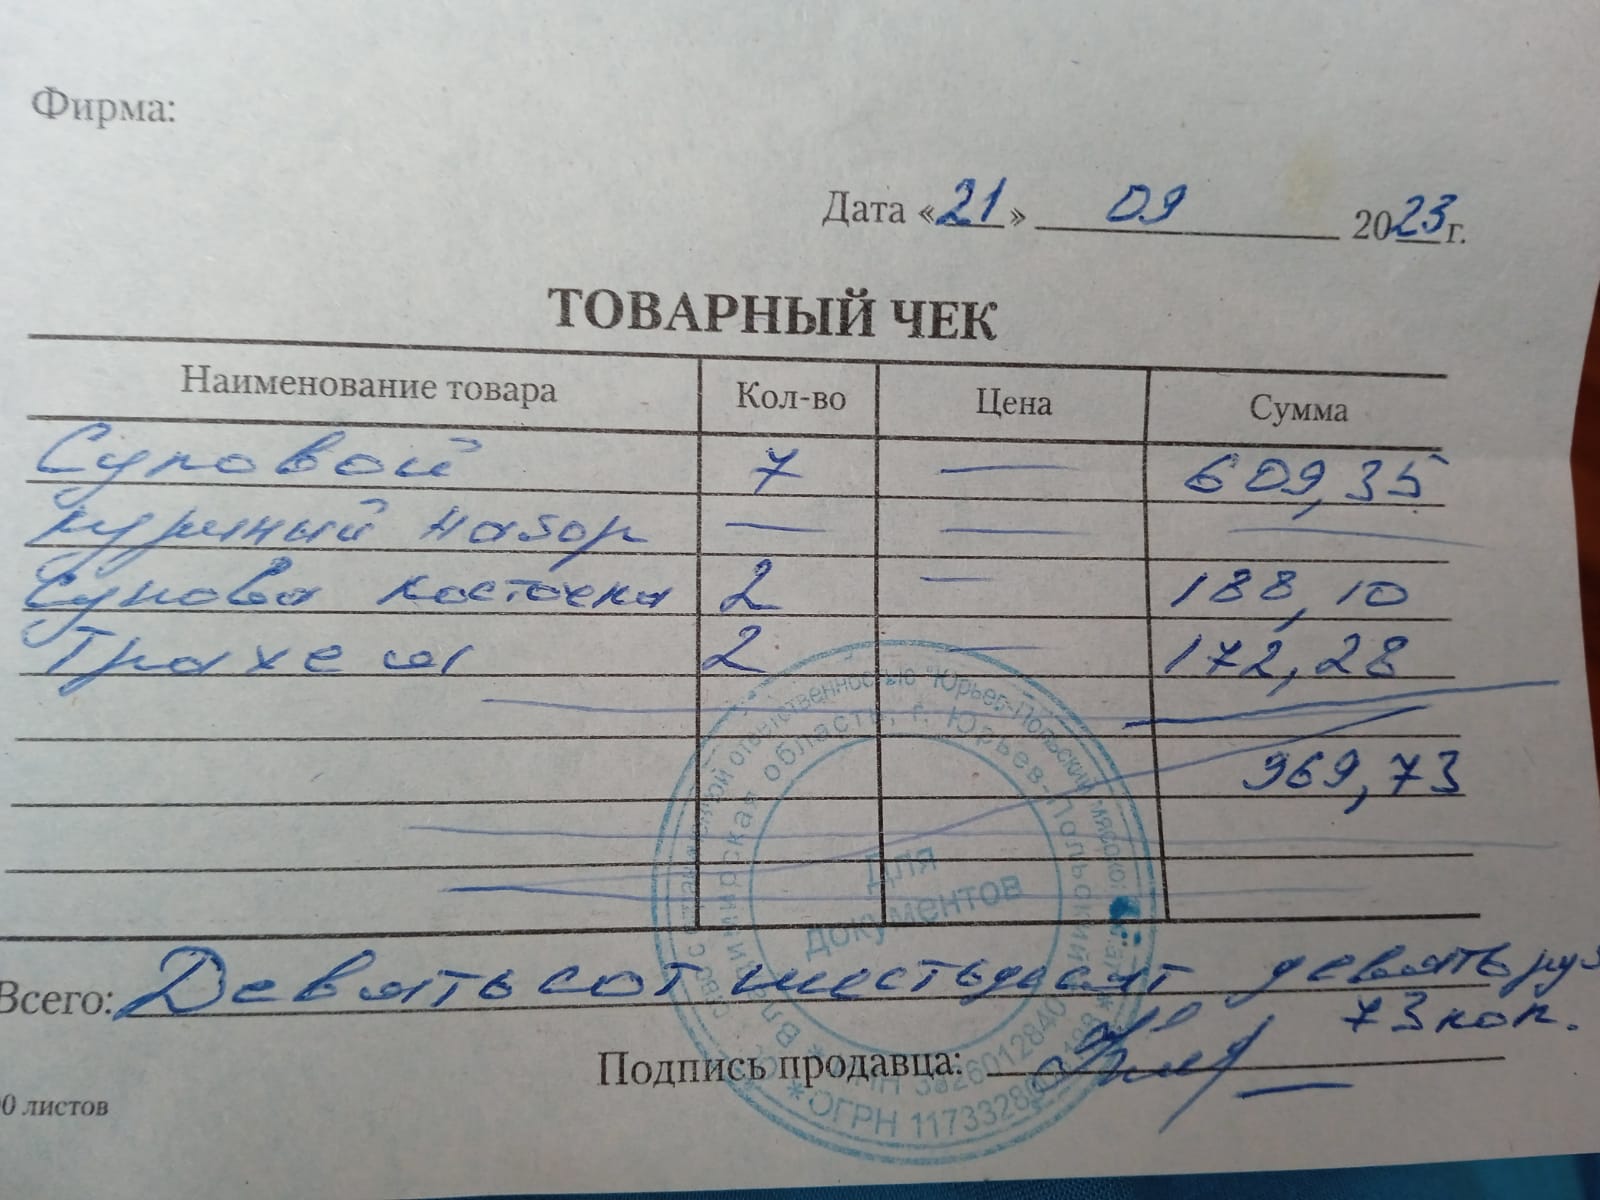 Фирма:
Дата «21» 09 2023 г.
ТОВАРНЫЙ ЧЕК
Наименование товара Кол-во Цена Сумма
Суповой 7 — 609,35
куриный набор — — —
Супова косточка 2 — 188,10
Трахея 2 — 172,28
969,73
Всего: Девятьсот шестьдесят девять руб
73 коп.
Подпись продавца:
0 листов
ответственностью "Юрьев-Польский мясоко
Владимирская область, г. Юрьев-Польский
Для
документов
ОГРН